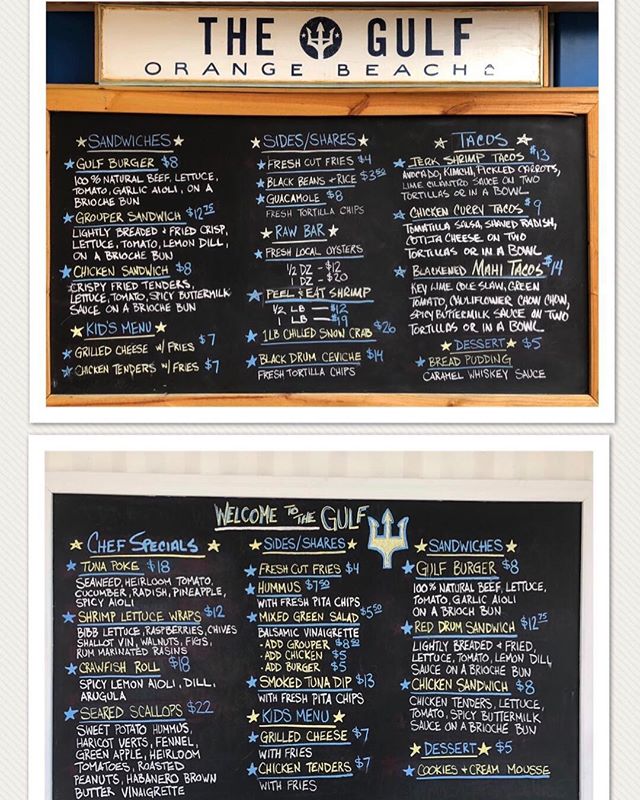 THE GULF
ORANGE BEACH
SANDWICHES
GULF BURGER $8
100% NATURAL BEEF, LETTUCE,
TOMATO, GARLIC AIOLI, ON A
BRIOCHE BUN
GROUPER SANDWICH $12.75
LIGHTLY BREADED + FRIED CRISP,
LETTUCE, TOMATO, LEMON DILL,
ON A BRIOCHE BUN
CHICKEN SANDWICH $8
CRISPY FRIED TENDERS,
LETTUCE, TOMATO, SPICY BUTTERMILK
SAUCE ON A BRIOCHE BUN
KID'S MENU
GRILLED CHEESE W/ FRIES $7
CHICKEN TENDERS W/ FRIES $7
SIDES/SHARES
FRESH CUT FRIES $4
BLACK BEANS + RICE $3.50
GUACAMOLE $8
FRESH TORTILLA CHIPS
RAW BAR
FRESH LOCAL OYSTERS
1/2 DZ - $12
1 DZ - $20
PEEL & EAT SHRIMP
1/2 LB — $12
1 LB — $19
1LB CHILLED SNOW CRAB $26
BLACK DRUM CEVICHE $14
FRESH TORTILLA CHIPS
TACOS
JERK SHRIMP TACOS $13
AVOCADO, KIMCHI, PICKLED CARROTS,
LIME CILANTRO SAUCE ON TWO
TORTILLAS OR IN A BOWL
CHICKEN CURRY TACOS $9
TOMATILLA SALSA, SHAVED RADISH,
COTIJA CHEESE ON TWO
TORTILLAS OR IN A BOWL
BLACKENED MAHI TACOS $14
KEY LIME COLE SLAW, GREEN
TOMATO, CAULIFLOWER CHOW CHOW,
SPICY BUTTERMILK SAUCE ON TWO
TORTILLAS OR IN A BOWL
DESSERT $5
BREAD PUDDING
CARAMEL WHISKEY SAUCE
WELCOME TO THE GULF
CHEF SPECIALS
TUNA POKE $18
SEAWEED, HEIRLOOM TOMATO,
CUCUMBER, RADISH, PINEAPPLE,
SPICY AIOLI
SHRIMP LETTUCE WRAPS $12
BIBB LETTUCE, RASPBERRIES, CHIVES
SHALLOT VIN, WALNUTS, FIGS,
RUM MARINATED RASINS
CRAWFISH ROLL $18
SPICY LEMON AIOLI, DILL,
ARUGULA
SEARED SCALLOPS $22
SWEET POTATO HUMMUS,
HARICOT VERTS, FENNEL,
GREEN APPLE, HEIRLOOM
TOMATOES, ROASTED
PEANUTS, HABANERO BROWN
BUTTER VINAIGRETTE
SIDES/SHARES
FRESH CUT FRIES $4
HUMMUS $7.50
WITH FRESH PITA CHIPS
MIXED GREEN SALAD $5.50
BALSAMIC VINAIGRETTE
- ADD GROUPER $8.50
- ADD CHICKEN $5
- ADD BURGER $5
SMOKED TUNA DIP $13
WITH FRESH PITA CHIPS
KIDS MENU
GRILLED CHEESE $7
WITH FRIES
CHICKEN TENDERS $7
WITH FRIES
SANDWICHES
GULF BURGER $8
100% NATURAL BEEF, LETTUCE,
TOMATO, GARLIC AIOLI
ON A BRIOCH BUN
RED DRUM SANDWICH $12.75
LIGHTLY BREADED + FRIED,
LETTUCE, TOMATO, LEMON DILL
SAUCE ON A BRIOCHE BUN
CHICKEN SANDWICH $8
CHICKEN TENDERS, LETTUCE,
TOMATO, SPICY BUTTERMILK
SAUCE ON A BRIOCHE BUN
DESSERT $5
COOKIES + CREAM MOUSSE